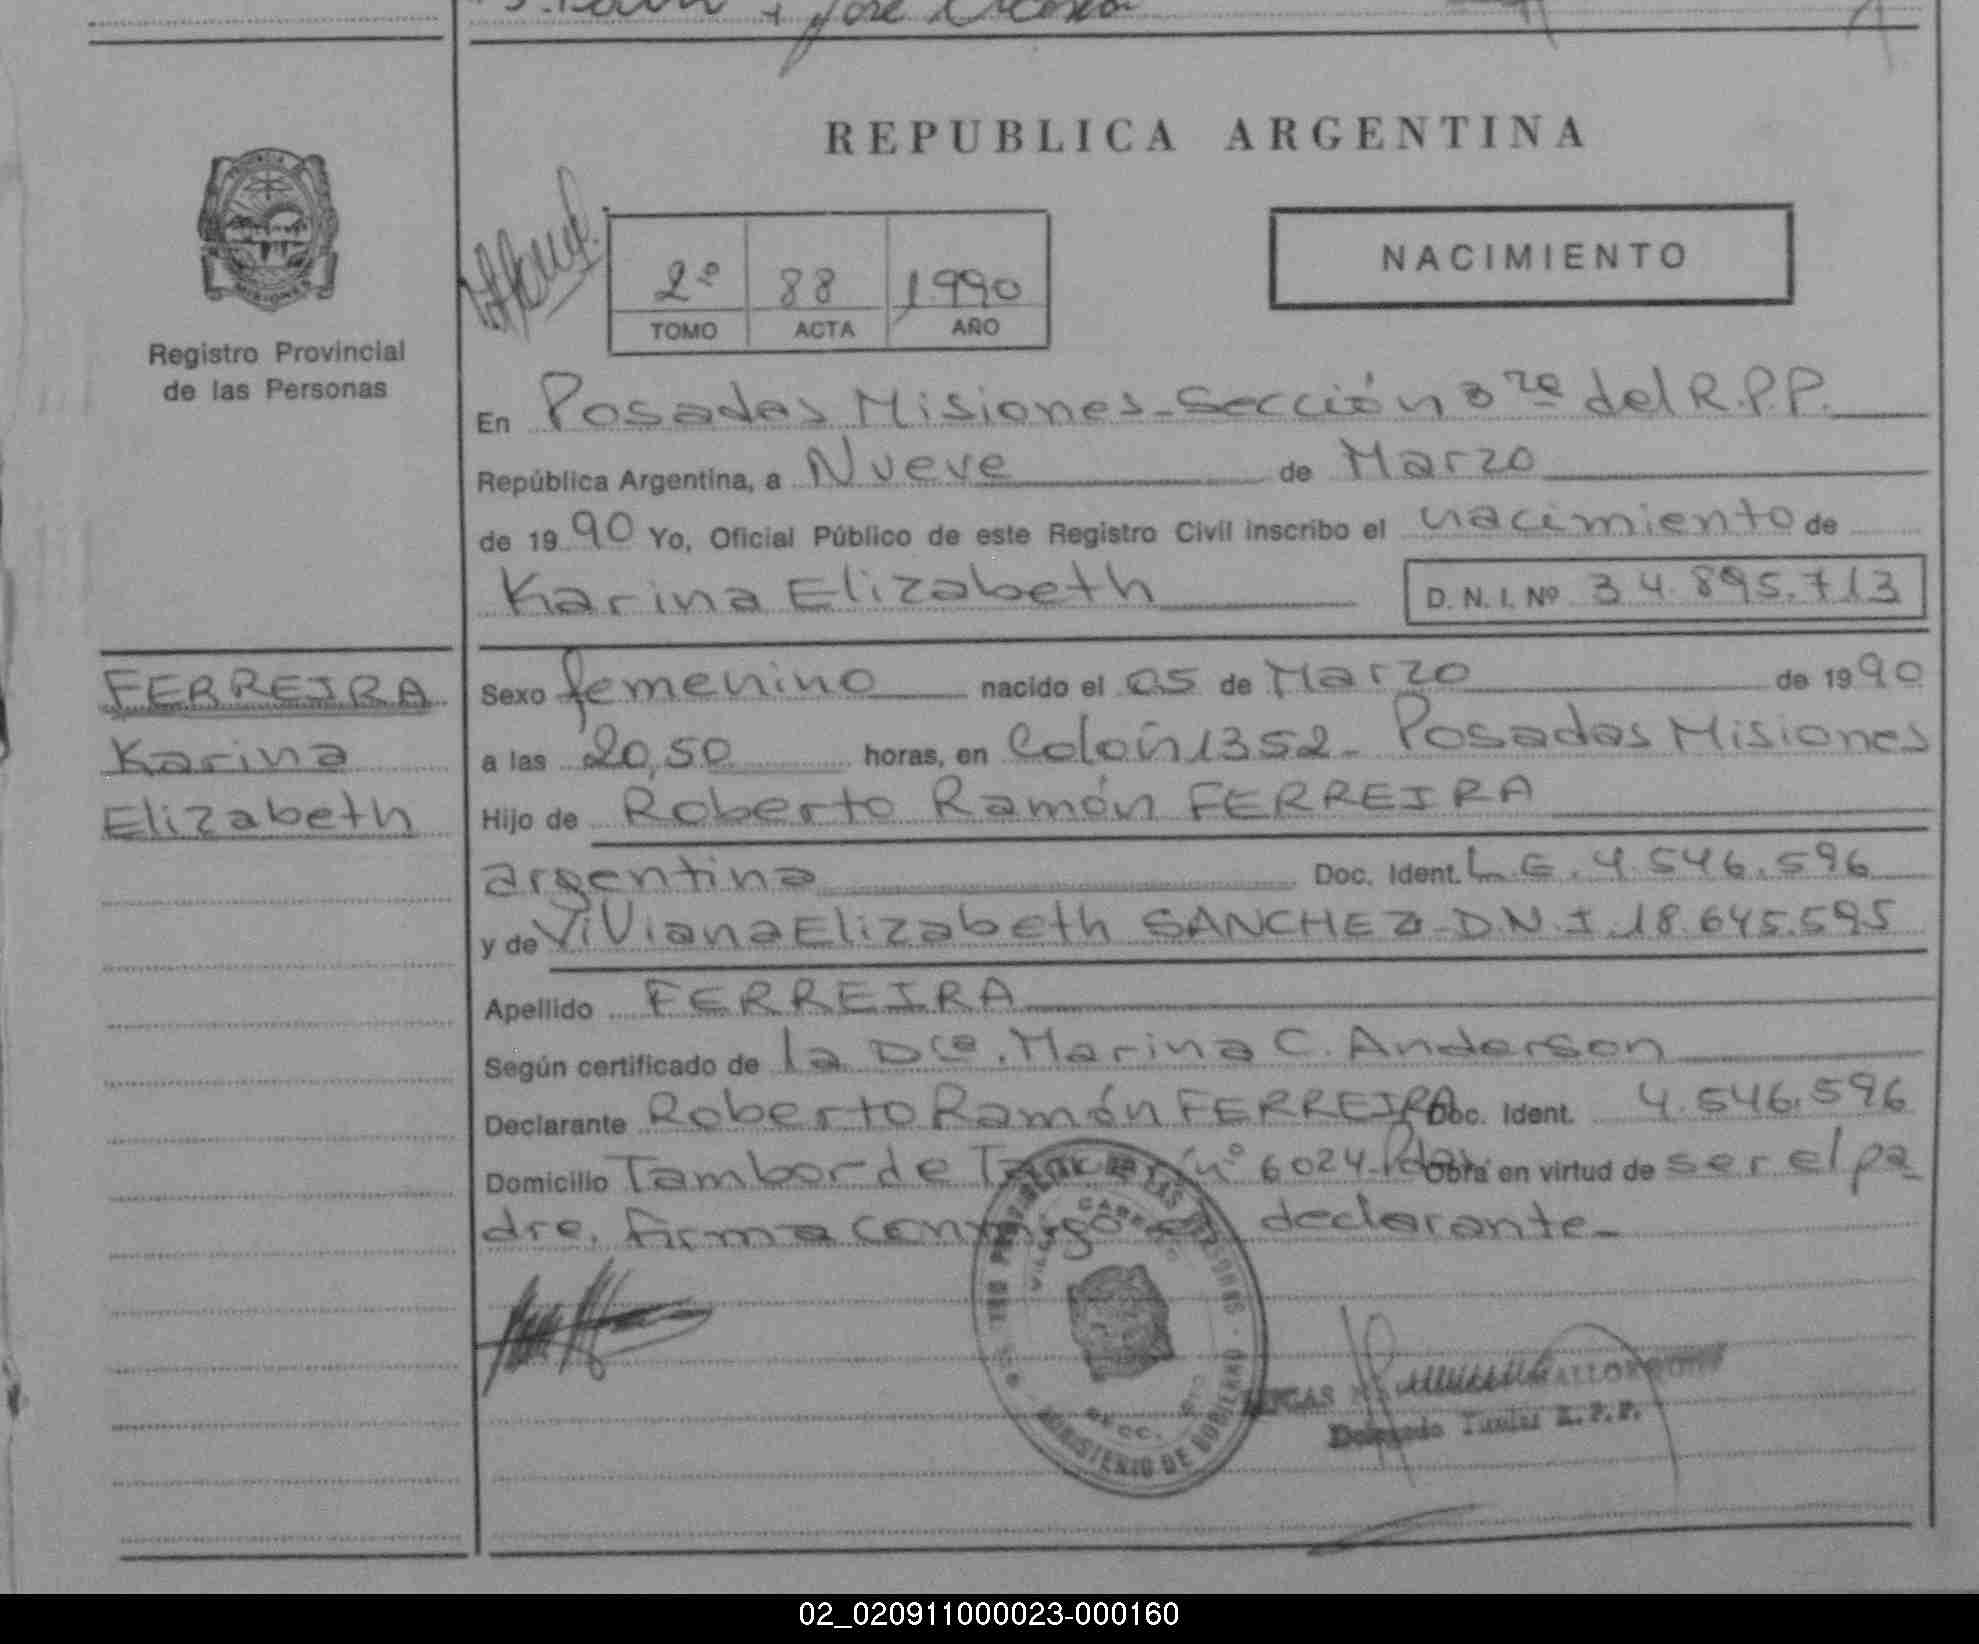 REPUBLICA ARGENTINA
MISIONES
Registro Provincial
de las Personas
2º 88 1990
TOMO ACTA AÑO
NACIMIENTO
En Posadas Misiones-Sección 3ra del R.P.P.
República Argentina, a Nueve de Marzo
de 1990 Yo, Oficial Público de este Registro Civil inscribo el nacimiento de
Karina Elizabeth D. N. I. Nº 34.895.713
FERREIRA
Karina
Elizabeth
Sexo femenino nacido el 05 de Marzo de 1990
a las 20,50 horas, en Colón 1352- Posadas Misiones
Hijo de Roberto Ramón FERREIRA
argentina Doc. Ident. L.E. 4.546.596
y de Viviana Elizabeth SANCHEZ-D.N.I. 18.645.595
Apellido FERREIRA
Según certificado de la Dra. Marina C. Anderson
Declarante Roberto Ramón FERREIRA Doc. Ident. 4.546.596
Domicilio Tambor de Tacuarí nº 6024-Pdas. Obra en virtud de ser el pa
dre. firma conmigo el declarante-
MINISTERIO DE GOBIERNO
Delegado Titular R.P.P.
02_020911000023-000160